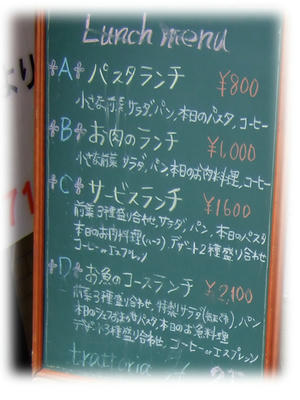 Lunch menu
A パスタランチ ¥800
小さな前菜 サラダ, パン, 本日のパスタ, コーヒー
B お肉のランチ ¥1,000
小さな前菜 サラダ, パン, 本日のお肉料理, コーヒー
C サービスランチ ¥1600
前菜3種盛り合わせ, サラダ, パン, 本日のパスタ
本日のお肉料理(ハーフ), デザート2種盛り合わせ
コーヒー or エスプレッソ
D お魚のコースランチ ¥2,100
前菜3種盛り合わせ, 特製サラダ パン
本日のシェフおまかせパスタ, 本日のお魚料理
デザート3種盛り合わせ, コーヒー or エスプレッソ
trattoria
より
71